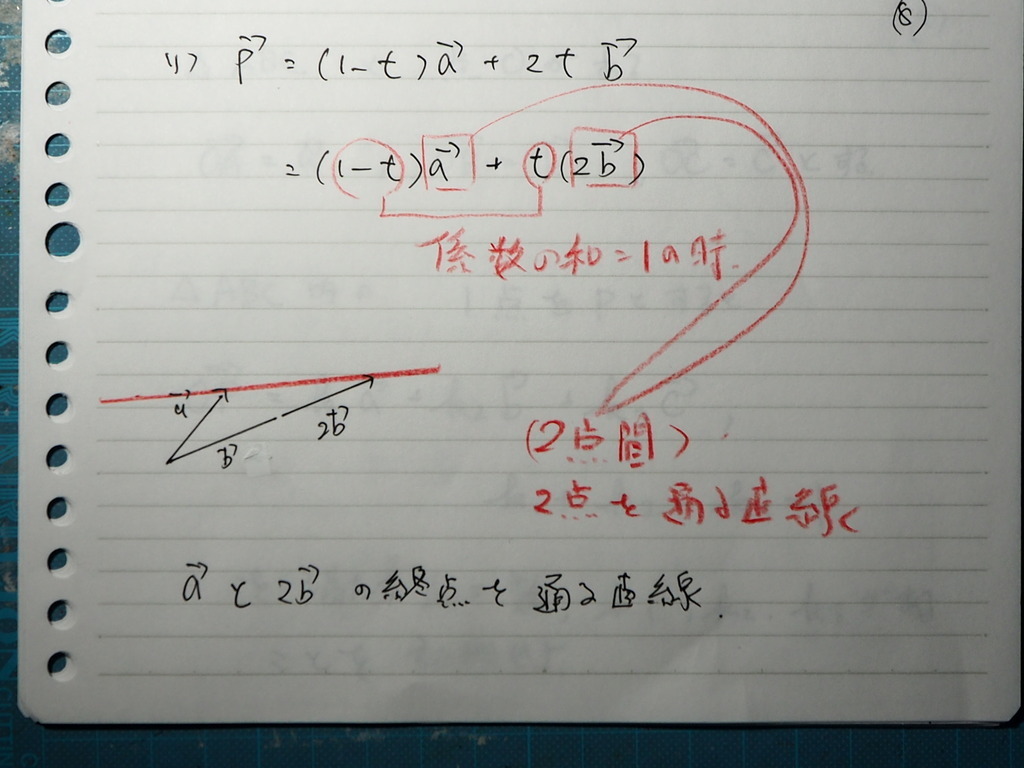 (8)
(1) p⃗ = (1-t)a⃗ + 2t b⃗
= (1-t)a⃗ + t(2b⃗)
係数の和=1の時
a⃗
b⃗
2b⃗
(2点間)
2点を通る直線
a⃗ と 2b⃗ の終点を通る直線.